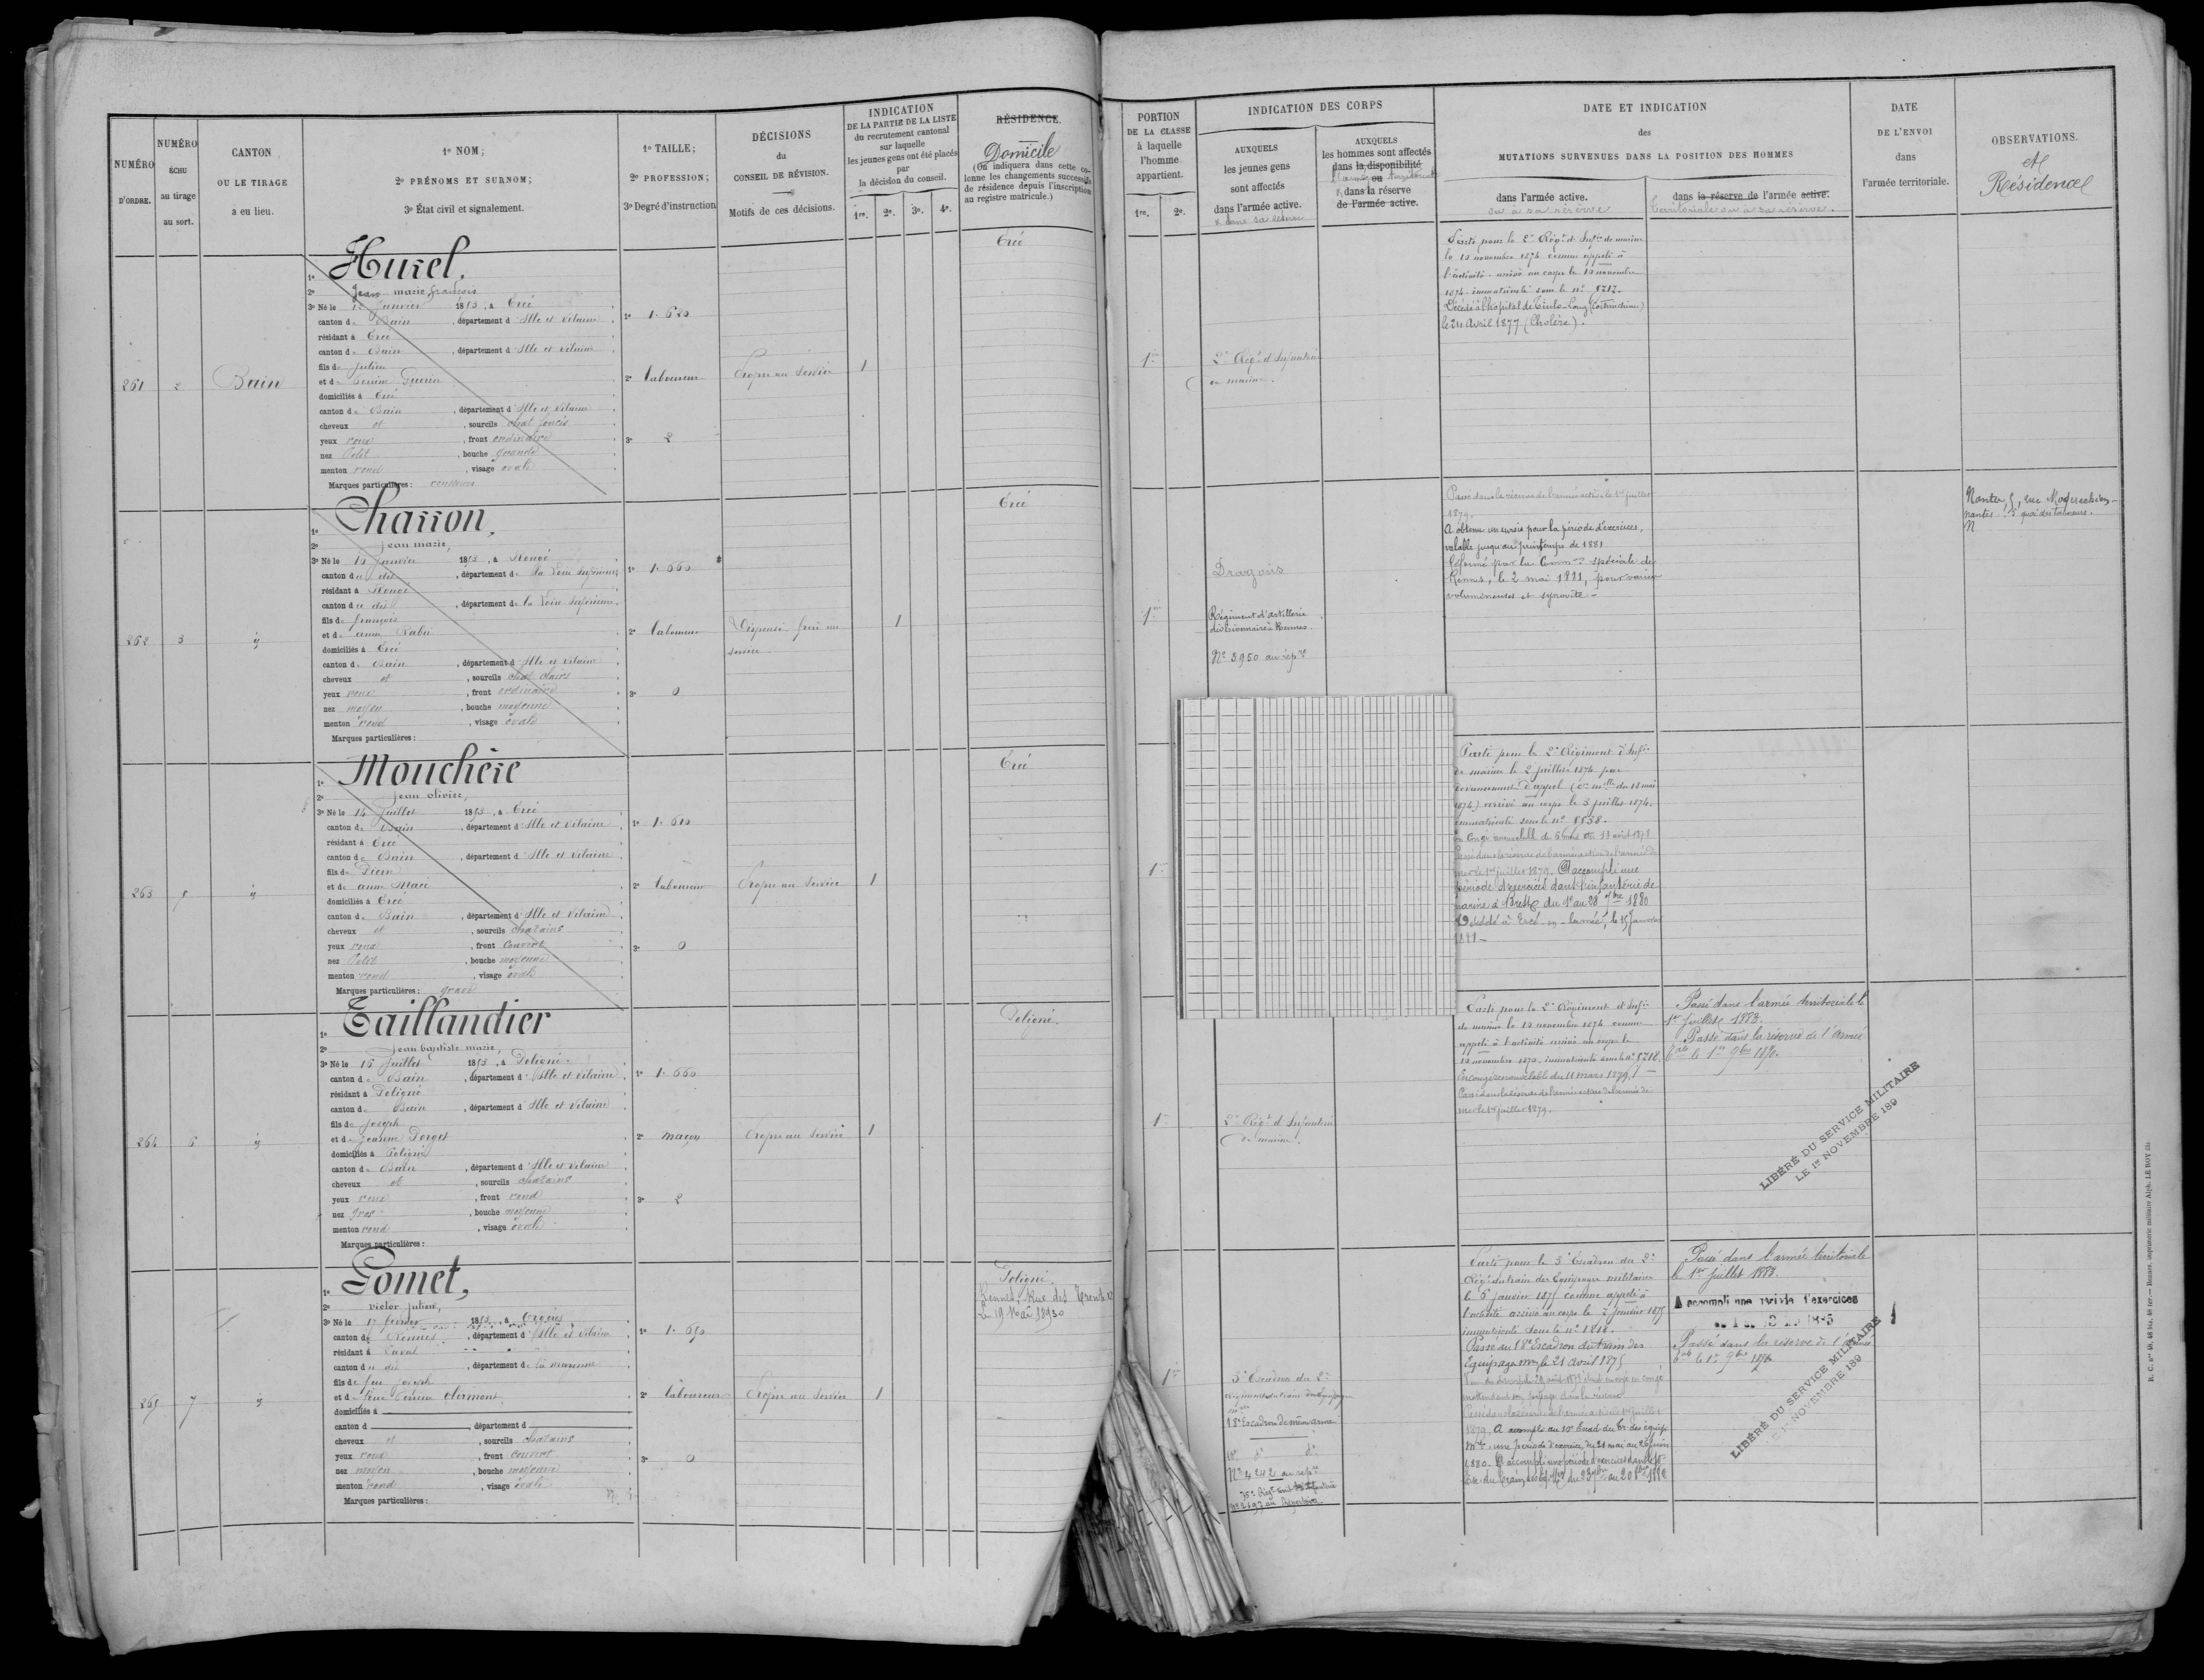 NUMÉRO
D'ORDRE.
NUMÉRO
ÉCHU
au tirage
au sort.
CANTON
OU LE TIRAGE
a eu lieu.
1º NOM;
2º PRÉNOMS ET SURNOM;
3º État civil et signalement.
1º TAILLE;
2º PROFESSION;
3º Degré d'instruction
DÉCISIONS
du
CONSEIL DE RÉVISION.
Motifs de ces décisions.
INDICATION
DE LA PARTIE DE LA LISTE
du recrutement cantonal
sur laquelle
les jeunes gens ont été placés
par
la décision du conseil.
1re. 2e. 3e. 4e.
RÉSIDENCE.
Domicile
(On indiquera dans cette co-
lonne les changements successifs
de résidence depuis l'inscription
au registre matricule.)
PORTION
DE LA CLASSE
à laquelle
l'homme
appartient.
1re. 2e.
INDICATION DES CORPS
AUXQUELS
les jeunes gens
sont affectés
dans l'armée active.
& dans sa réserve
AUXQUELS
les hommes sont affectés
dans la disponibilité
ou
dans la réserve
de l'armée active.
DATE ET INDICATION
des
MUTATIONS SURVENUES DANS LA POSITION DES HOMMES
dans l'armée active.
ou à sa réserve
dans la réserve de l'armée active.
territoriale ou à sa réserve.
DATE
DE L'ENVOI
dans
l'armée territoriale.
OBSERVATIONS.
et
Résidence
261 2 Bain
1º Hurel,
2º Jean marie françois
3º Né le 10 Janvier 1853, à Ercé
canton de Bain, département d'Ille et Vilaine
résidant à Ercé
canton de Bain, département d'Ille et Vilaine
fils de Julien
et de Guerin
domiciliés à Ercé
canton de Bain, département d'Ille et Vilaine
cheveux et, sourcils chat foncés
yeux roux, front ordinaire
nez Petit, bouche grande
menton rond, visage ovale
Marques particulières: rousseurs
1º 1.620
2º laboureur
3º 2
Propre au Service
1
Ercé
1re
2e Régt d'Infanterie
de marine.
Parti pour le 2e Régt d'Infie de marine
le 10 novembre 1874 comme appelé à
l'activité arrivé au corps le 10 novembre
1874 immatriculé sous le nº 5717.
Décédé à l'hôpital de (Cochinchine)
le 24 Avril 1877 (Choléra).
262 3 id
1º Charron,
2º Jean marie,
3º Né le 15 Janvier 1853, à Rougé
canton du dit, département de la Loire Inférieure
résidant à Rougé
canton du dit, département de la Loire Inférieure
fils de françois
et de anne Rabu
domiciliés à Ercé
canton de Bain, département d'Ille et Vilaine
cheveux et, sourcils chat clairs
yeux roux, front ordinaire
nez moyen, bouche moyenne
menton rond, visage ovale
Marques particulières:
1º 1.660
2º laboureur
3º 0
Dispensé frère au
service
1
Ercé
1re
Dragons
Régiment d'artillerie
divisionnaire à Rennes.
Nº 3950 au répre
Passé dans la réserve de l'armée active le 1er juillet
1879.
A obtenu un sursis pour la période d'exercices,
valable jusqu'au printemps de 1881
Réformé par la Common spéciale de
Rennes, le 2 mai 1881, pour varices
volumineuses et synovite -
Nantes 5, rue
Nantes 3 quai des tanneurs.
263 5 id
1º Mouchère
2º Jean olivier,
3º Né le 14 Juillet 1853, à Ercé
canton de Bain, département d'Ille et Vilaine
résidant à Ercé
canton de Bain, département d'Ille et Vilaine
fils de Pierre
et de anne Macé
domiciliés à Ercé
canton de Bain, département d'Ille et Vilaine
cheveux et, sourcils chatains
yeux roux, front Couvert
nez Petit, bouche moyenne
menton rond, visage ovale
Marques particulières: gravé
1º 1.610
2º laboureur
3º 0
Propre au Service
1
Ercé
1re
Parti pour le 2e Régiment d'Infie
de marine le 2 juillet 1874 par
devancement d'appel (Cre mlle du 18 mai
1874) arrivé au corps le 3 juillet 1874.
immatriculé sous le nº 5538.
En Congé renouvelable de 6 mois 18 avril 1878
Passé dans la réserve de l'armée active de l'armée de
mer le 1er juillet 1879. A accompli une
période d'exercices dans l'infanterie de
marine à Brest du 1er au 28 1880
Décédé à Ercé-en-lamée, le 15 Janvier
1881 -
264 6 id
1º Taillandier
2º Jean baptiste marie,
3º Né le 16 Juillet 1853, à Poligné
canton de Bain, département d'Ille et Vilaine
résidant à Poligné
canton de Bain, département d'Ille et Vilaine
fils de Joseph
et de Jeanne Dorget
domiciliés à Poligné
canton de Bain, département d'Ille et Vilaine
cheveux et, sourcils chatains
yeux roux, front rond
nez gros, bouche moyenne
menton rond, visage ovale
Marques particulières:
1º 1.660
2º maçon
3º 2
Propre au Service
1
Poligné.
1re
2e Régt d'Infanterie
de marine.
Parti pour le 2e Régiment d'Infie
de marine le 10 novembre 1874 comme
appelé à l'activité arrivé au corps le
10 novembre 1874 immatriculé sous le nº 5718.
En congé renouvelable du 11 mars 1879
Passé dans la réserve de l'armée active de l'armée de
mer le 1er juillet 1879.
Passé dans l'armée territoriale le
1er Juillet 1883.
Passé dans la réserve de l'armée
tale le 1er 9bre 1890.
LIBÉRÉ DU SERVICE MILITAIRE
LE 1er NOVEMBRE 189
265 7 id
1º Gomet,
2º victor julien,
3º Né le 17 février 1853, à Orgères
canton de Rennes, département d'Ille et Vilaine
résidant à Laval
canton du dit, département de la mayenne
fils de feu Joseph
et de feue Perrine Clermont
domiciliés à
canton d, département d
cheveux et, sourcils chatains
yeux roux, front couvert
nez moyen, bouche moyenne
menton rond, visage ovale
Marques particulières:
1º 1.650
2º laboureur
3º 0
Propre au Service
1
Poligné
Rennes, Rue des
Le 19 Mai 1893
1re
5e Escadron du 2e
régiment du train des Equipages
18e Escadron de même arme
Nº 4242 au répre
Parti pour le 5e Escadron du 2e
Régt du train des Equipages militaires
le 6 janvier 1875 comme appelé à
l'activité arrivé au corps le 7 janvier 1875
immatriculé sous le nº 1818.
Passé au 18e Escadron du train des
Equipages mres le 21 avril 1875
Passé dans la réserve de l'armée active le 1er juillet
1879. A accompli au 10e Escad. du tr. des équip.
mres une période d'exercices du 31 mai au 26 juin
1880. A accompli une période d'exercices dans le
Passé dans l'armée territoriale
le 1er Juillet 1883.
A accompli une période d'exercices
Passé dans la réserve de l'armée
tale le 1er 9bre 1890
LIBÉRÉ DU SERVICE MILITAIRE
LE 1er NOVEMBRE 189
R. C. nos 48, 48 bis, 48 ter. — Rennes, imprimerie militaire Alph. LE ROY fils